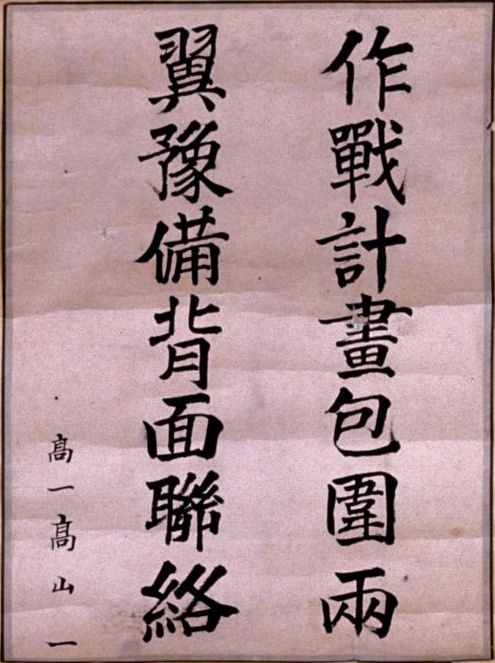 作戰計畫包圍兩
翼豫備背面聯絡
高一高山一